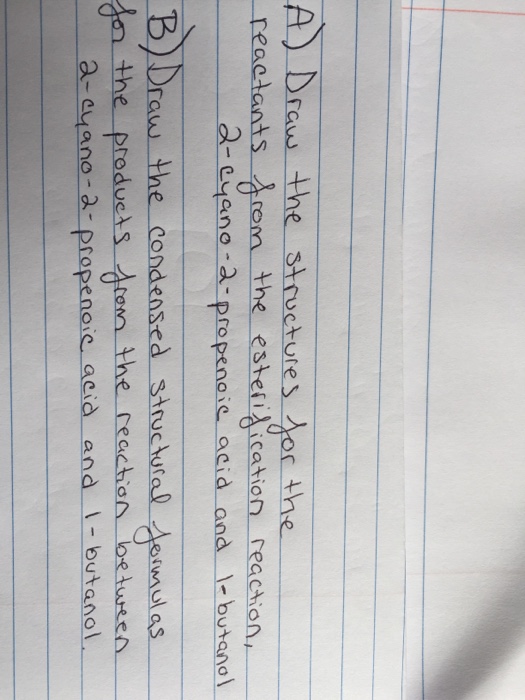 A) Draw the structures for the
reactants from the esterification reaction,
2-cyano-2-propenoic acid and 1-butanol
B) Draw the condensed structural formulas
for the products from the reaction between
2-cyano-2-propenoic acid and 1-butanol.